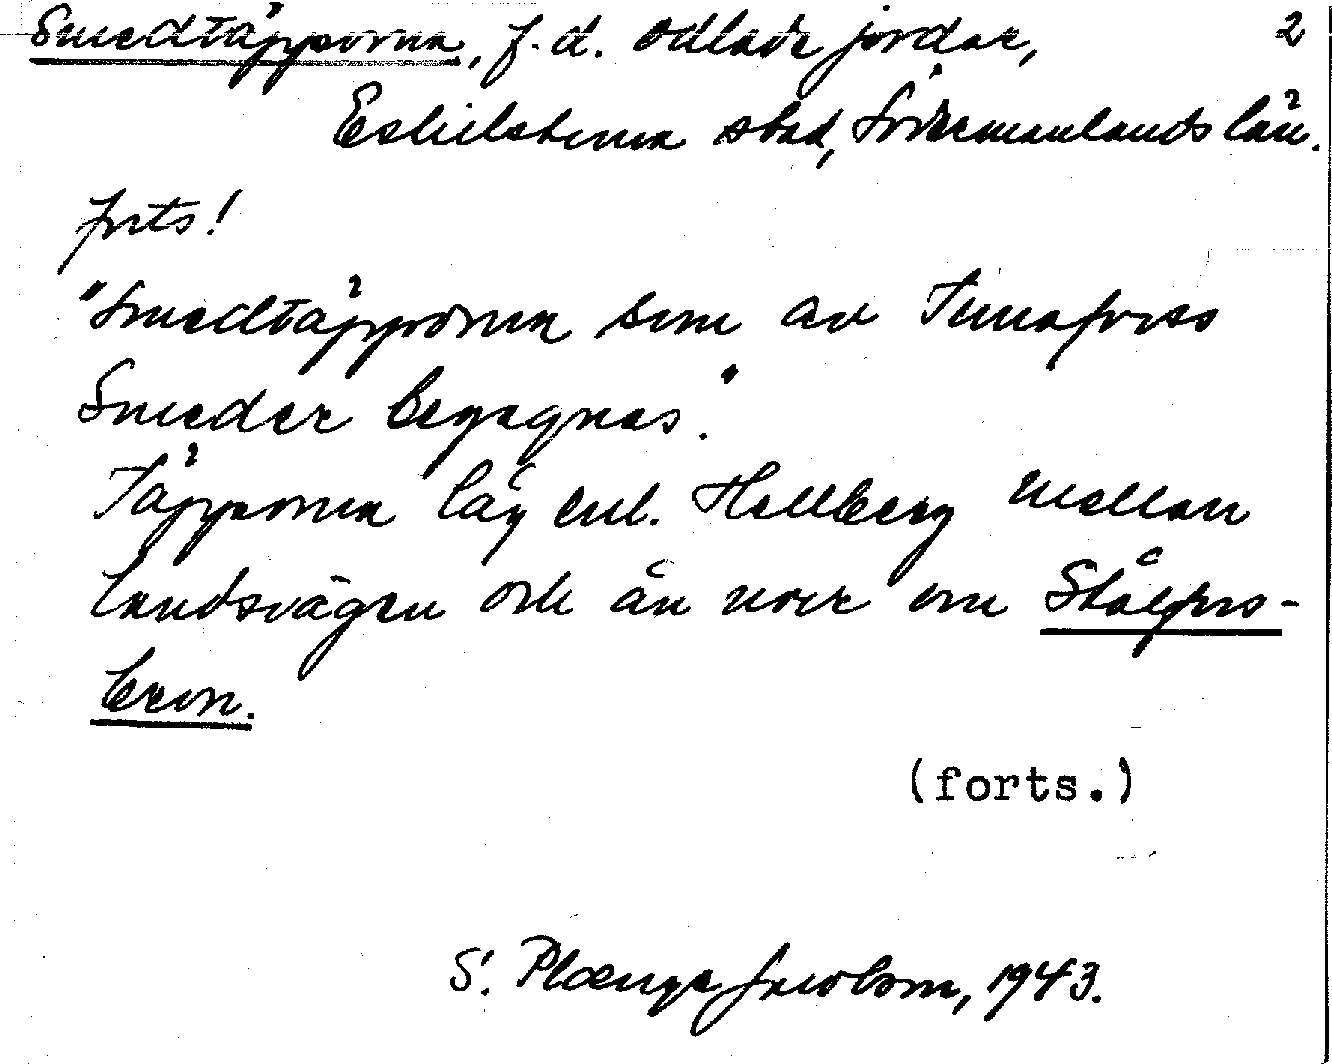 Smedtäpporna, f.d. odlade jordar, 2
Eskilstuna stad, Södermanlands län.
forts!
"Smedtäpporna som av Tunafors
Smeder begagnas."
Täpporna låg enl. Hellberg mellan
landsvägen och ån norr om Stålfors-
bron.
(forts.)
S. Plænge Jacobson, 1943.